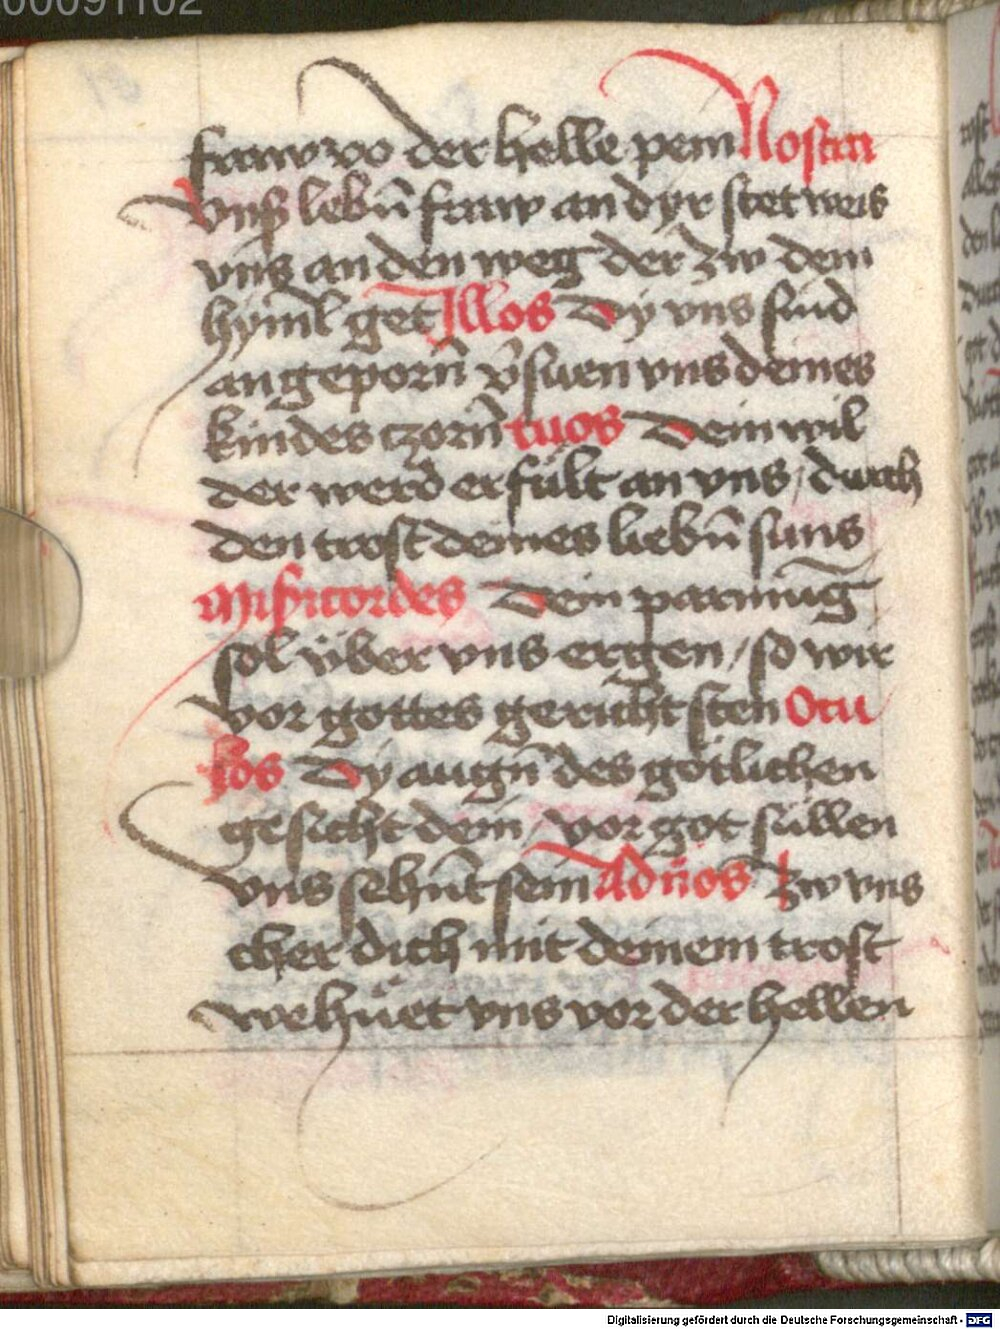 00091102
fraw vo der helle pein Nostra
Vnß lebn̄ fraw an dyr stet weis
vns an den weg der zw dem
hyml̄ get Illos Dy vns sind
angeporn̄ v̄suen vns deines
kindes czorn̄ tuos Dein wil
der werd erfült an vns / durch
den trost deines liebn̄ suns
Misicordes Dein parmūg
sol über vns ergen / so wir
vor gottes gericht sten Ocu
los Dy augn̄ des götlichen
gesicht dein / vor got süllen
vns sehn̄t sein Ad n̄os Zw vns
cher dich mit deinem trost
wehüet vns vor der hellen
Digitalisierung gefördert durch die Deutsche Forschungsgemeinschaft - DFG